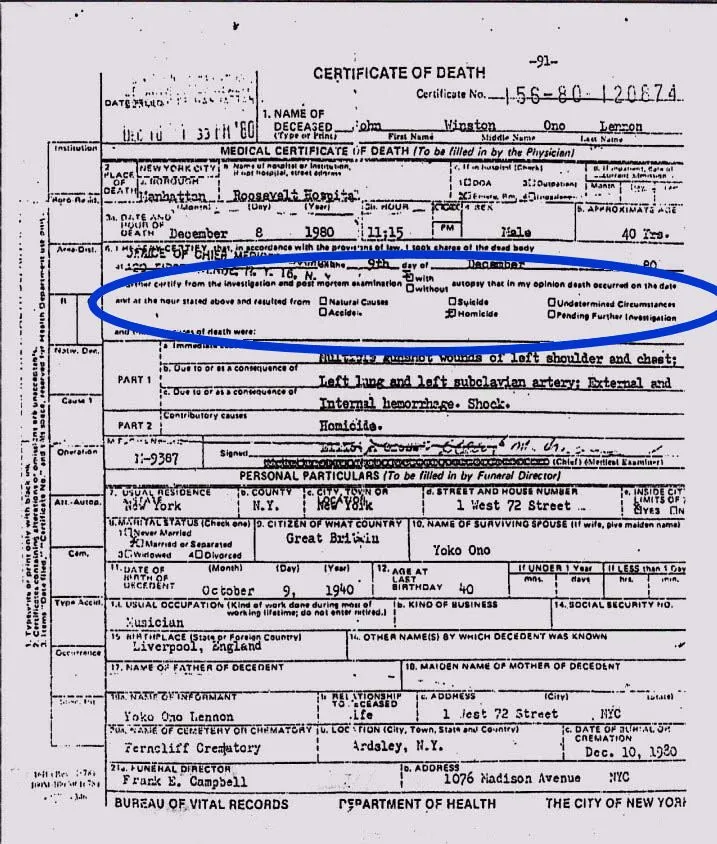 -91-
CERTIFICATE OF DEATH
Certificate No. 156-80-120874
DATE FILED
DEC 10 1 33 PM '80
1. NAME OF DECEASED (Type or Print) John Winston Ono Lennon
First Name Middle Name Last Name
Institution
MEDICAL CERTIFICATE OF DEATH (To be filled in by the Physician)
2. PLACE OF DEATH
NEW YORK CITY
a. BOROUGH
Manhattan
b. Name of hospital or institution, if not hospital, street address
Roosevelt Hospital
c. If in hospital (Check)
1 DOA 3 Outpatient
d. If inpatient, date of current admission
Month
(Month) (Day) (Year)
3a. DATE AND HOUR OF DEATH December 8 1980
3b. HOUR 11:15 PM
4. SEX Male
5. APPROXIMATE AGE 40 Yrs.
Area-Dist.
6. I HEREBY CERTIFY that, in accordance with the provisions of law, I took charge of the dead body
OFFICE OF CHIEF
9th day of December 80
further certify from the investigation and post mortem examination with
without autopsy that in my opinion death occurred on the date
and at the hour stated above and resulted from Natural Causes Suicide Undetermined Circumstances
Accident Homicide Pending Further Investigation
and the causes of death were:
Nativ. Dec.
PART 1
a. Immediate
Multiple gunshot wounds of left shoulder and chest;
b. Due to or as a consequence of
Left lung and left subclavian artery; External and
Cause 1
c. Due to or as a consequence of
Internal hemorrhage. Shock.
PART 2
Contributory causes
Homicide.
Operation
M-9387
Signed
(Chief) (Medical Examiner)
PERSONAL PARTICULARS (To be filled in by Funeral Director)
Att.-Autop.
7. USUAL RESIDENCE
a. STATE
New York
b. COUNTY
N.Y.
c. CITY, TOWN OR LOCATION
New York
d. STREET AND HOUSE NUMBER
1 West 72 Street
e. INSIDE CITY LIMITS OF
YES
8. MARITAL STATUS (Check one)
1 Never Married
Married or Separated
3 Widowed 4 Divorced
9. CITIZEN OF WHAT COUNTRY
Great Britain
10. NAME OF SURVIVING SPOUSE (If wife, give maiden name)
Yoko Ono
Cem.
11. DATE OF BIRTH OF DECEDENT
(Month) (Day) (Year)
October 9, 1940
12. AGE AT LAST BIRTHDAY 40
If UNDER 1 Year
mos. days
If LESS than 1 Day
hrs. min.
Type Accid.
13a. USUAL OCCUPATION (Kind of work done during most of working lifetime; do not enter retired.)
Musician
b. KIND OF BUSINESS
14. SOCIAL SECURITY NO.
15. BIRTHPLACE (State or Foreign Country)
Liverpool, England
16. OTHER NAME(S) BY WHICH DECEDENT WAS KNOWN
Occurrence
17. NAME OF FATHER OF DECEDENT
18. MAIDEN NAME OF MOTHER OF DECEDENT
19a. NAME OF INFORMANT
Yoko Ono Lennon
b. RELATIONSHIP TO DECEASED
Wife
c. ADDRESS (City) (State)
1 West 72 Street NYC
20a. NAME OF CEMETERY OR CREMATORY
Ferncliff Crematory
b. LOCATION (City, Town, State and Country)
Ardsley, N.Y.
c. DATE OF BURIAL OR CREMATION
Dec. 10, 1980
21a. FUNERAL DIRECTOR
Frank E. Campbell
b. ADDRESS
1076 Madison Avenue NYC
BUREAU OF VITAL RECORDS DEPARTMENT OF HEALTH THE CITY OF NEW YORK